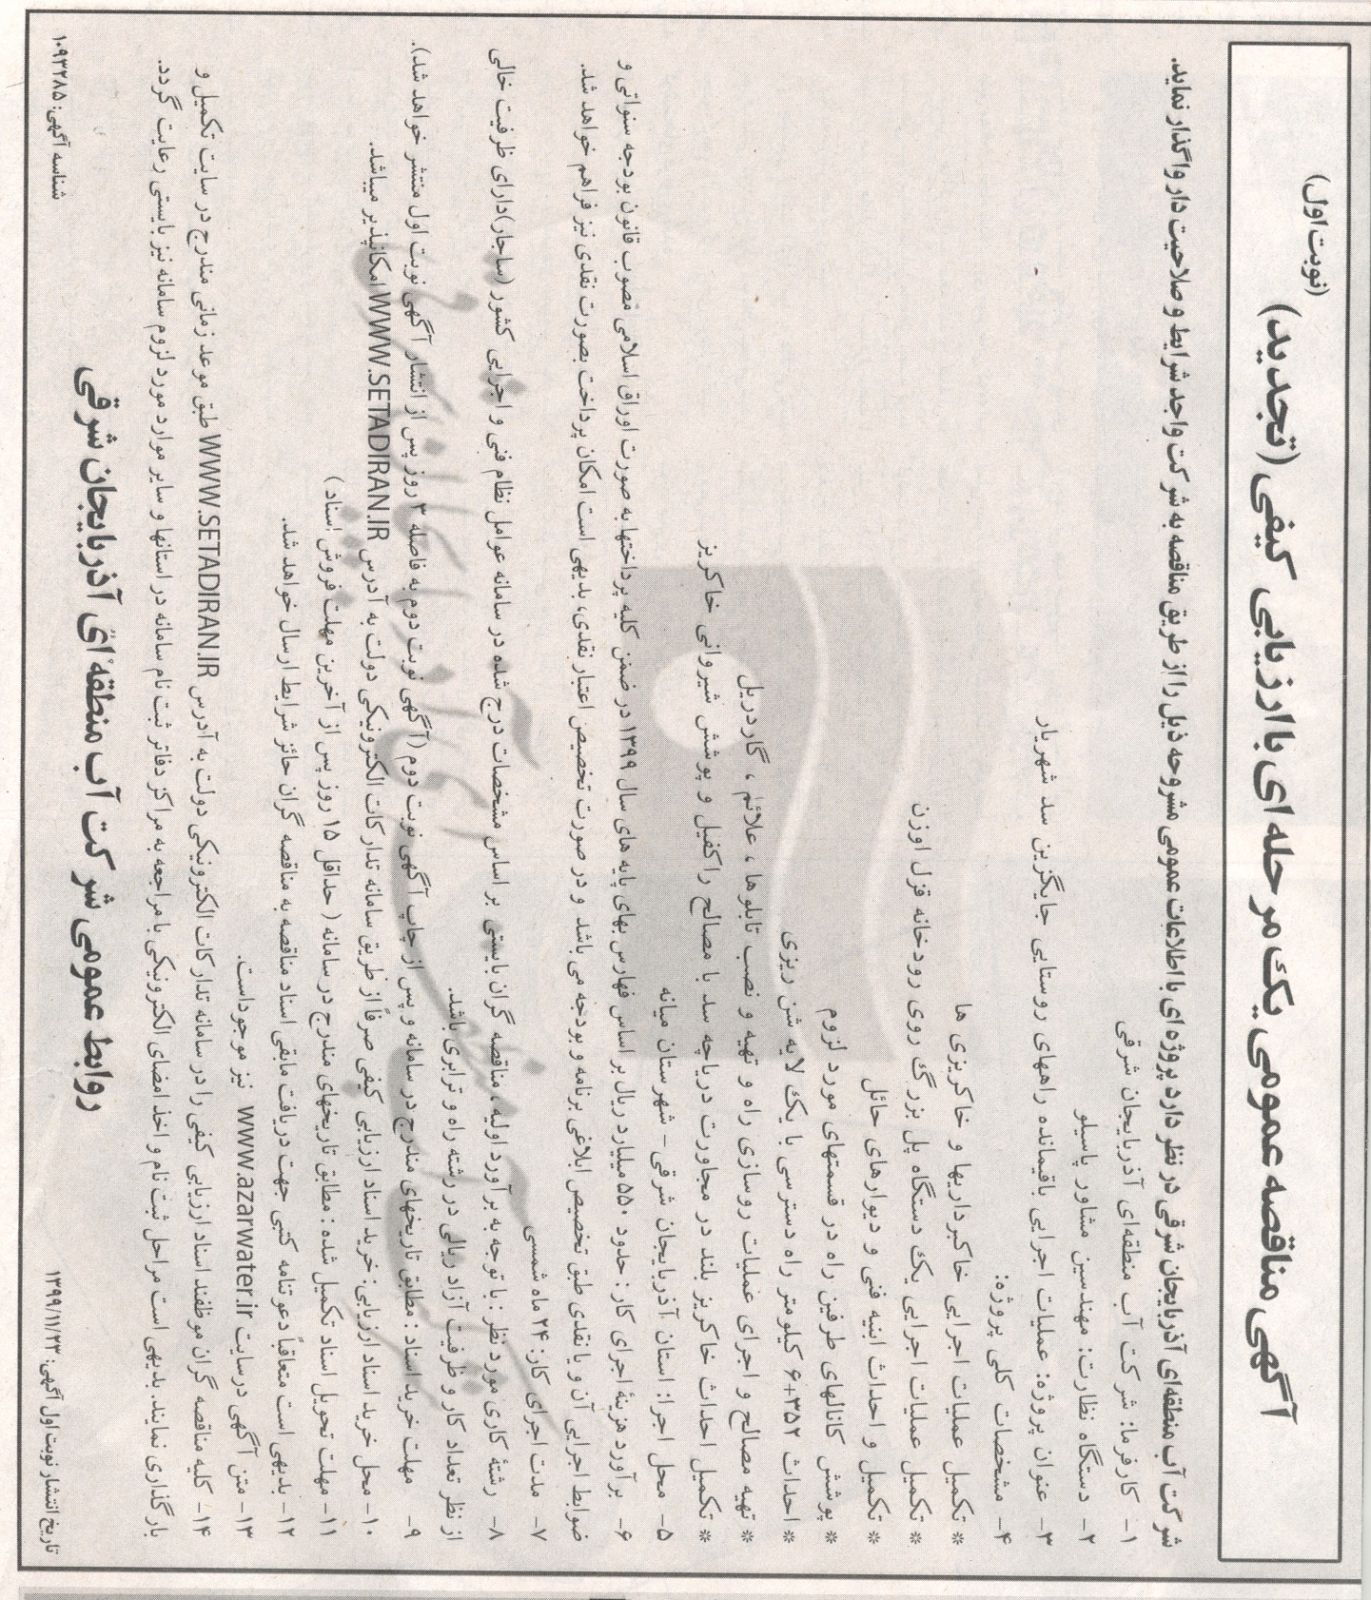 آگهی مناقصه عمومی یک مرحله ای با ارزیابی کیفی (تجدید)
(نوبت اول)
شرکت آب منطقه‌ای آذربایجان شرقی در نظر دارد پروژه ای با اطلاعات عمومی مشروحه ذیل را از طریق مناقصه به شرکت واجد شرایط و صلاحیت دار واگذار نماید.
۱- کارفرما: شرکت آب منطقه‌ای آذربایجان شرقی
۲- دستگاه نظارت: مهندسین مشاور پاسیلو
۳- عنوان پروژه: عملیات اجرایی باقیمانده راههای روستایی جایگزین سد شهریار
۴- مشخصات کلی پروژه:
* تکمیل عملیات اجرایی خاکبرداریها و خاکریزی ها
* تکمیل عملیات اجرایی یک دستگاه پل بزرگ روی رودخانه قزل اوزن
* تکمیل و احداث ابنیه فنی و دیوارهای حائل
* پوشش کانالهای طرفین راه در قسمتهای مورد لزوم
* احداث ۶+۳۵۲ کیلومتر راه دسترسی با یک لایه شن ریزی
* تهیه مصالح و اجرای عملیات روسازی راه و تهیه و نصب تابلوها ، علائم ، گاردریل
* تکمیل احداث خاکریز بلند در مجاورت دریاچه سد با مصالح راکفیل و پوشش شیروانی خاکریز
۵- محل اجرا: استان آذربایجان شرقی – شهرستان میانه
۶- برآورد هزینۀ اجرای کار: حدود ۵۵۰ میلیارد ریال بر اساس فهارس بهای پایه های سال ۱۳۹۹ در ضمن کلیه پرداختها به صورت اوراق اسلامی مصوب قانون بودجه سنواتی و
ضوابط اجرایی آن و یا نقدی طبق تخصیص ابلاغی برنامه و بودجه می باشد و در صورت تخصیص اعتبار نقدی، بدیهی است امکان پرداخت بصورت نقدی نیز فراهم خواهد شد.
۷- مدت اجرای کار: ۲۴ ماه شمسی
۸- رشتۀ کاری مورد نظر: با توجه به برآورد اولیه، مناقصه گران بایستی بر اساس مشخصات درج شده در سامانه عوامل نظام فنی و اجرایی کشور (ساجار)دارای ظرفیت خالی
از نظر تعداد کار و ظرفیت آزاد ریالی در رشته راه و ترابری باشد.
۹- مهلت خرید اسناد : مطابق تاریخهای مندرج در سامانه و پس از چاپ آگهی نوبت دوم (آگهی نوبت دوم به فاصله ۳ روز پس از انتشار آگهی نوبت اول منتشر خواهد شد).
۱۰- محل خرید اسناد ارزیابی: خرید اسناد ارزیابی کیفی صرفاً از طریق سامانه تدارکات الکترونیکی دولت به آدرس WWW.SETADIRAN.IR امکانپذیر میباشد.
۱۱- مهلت تحویل اسناد تکمیل شده : مطابق تاریخهای مندرج در سامانه ( حداقل ۱۵ روز پس از آخرین مهلت فروش اسناد )
۱۲- بدیهی است متعاقباً دعوتنامه کتبی جهت دریافت مابقی اسناد مناقصه به مناقصه گران حائز شرایط ارسال خواهد شد.
۱۳- متن آگهی درسایت www.azarwater.ir نیز موجوداست.
۱۴- کلیه مناقصه گران موظفند اسناد ارزیابی کیفی را در سامانه تدارکات الکترونیکی دولت به آدرس WWW.SETADIRAN.IR طبق موعد زمانی مندرج در سایت تکمیل و
بارگذاری نمایند. بدیهی است مراحل ثبت نام و اخذ امضای الکترونیکی با مراجعه به مراکز دفاتر ثبت نام سامانه در استانها و سایر موارد مورد لزوم سامانه نیز بایستی رعایت گردد.
روابط عمومی شرکت آب منطقه ای آذربایجان شرقی
تاریخ انتشار نوبت اول آگهی: ۱۳۹۹/۱۱/۲۳
شناسه آگهی: ۱۰۹۳۲۸۵